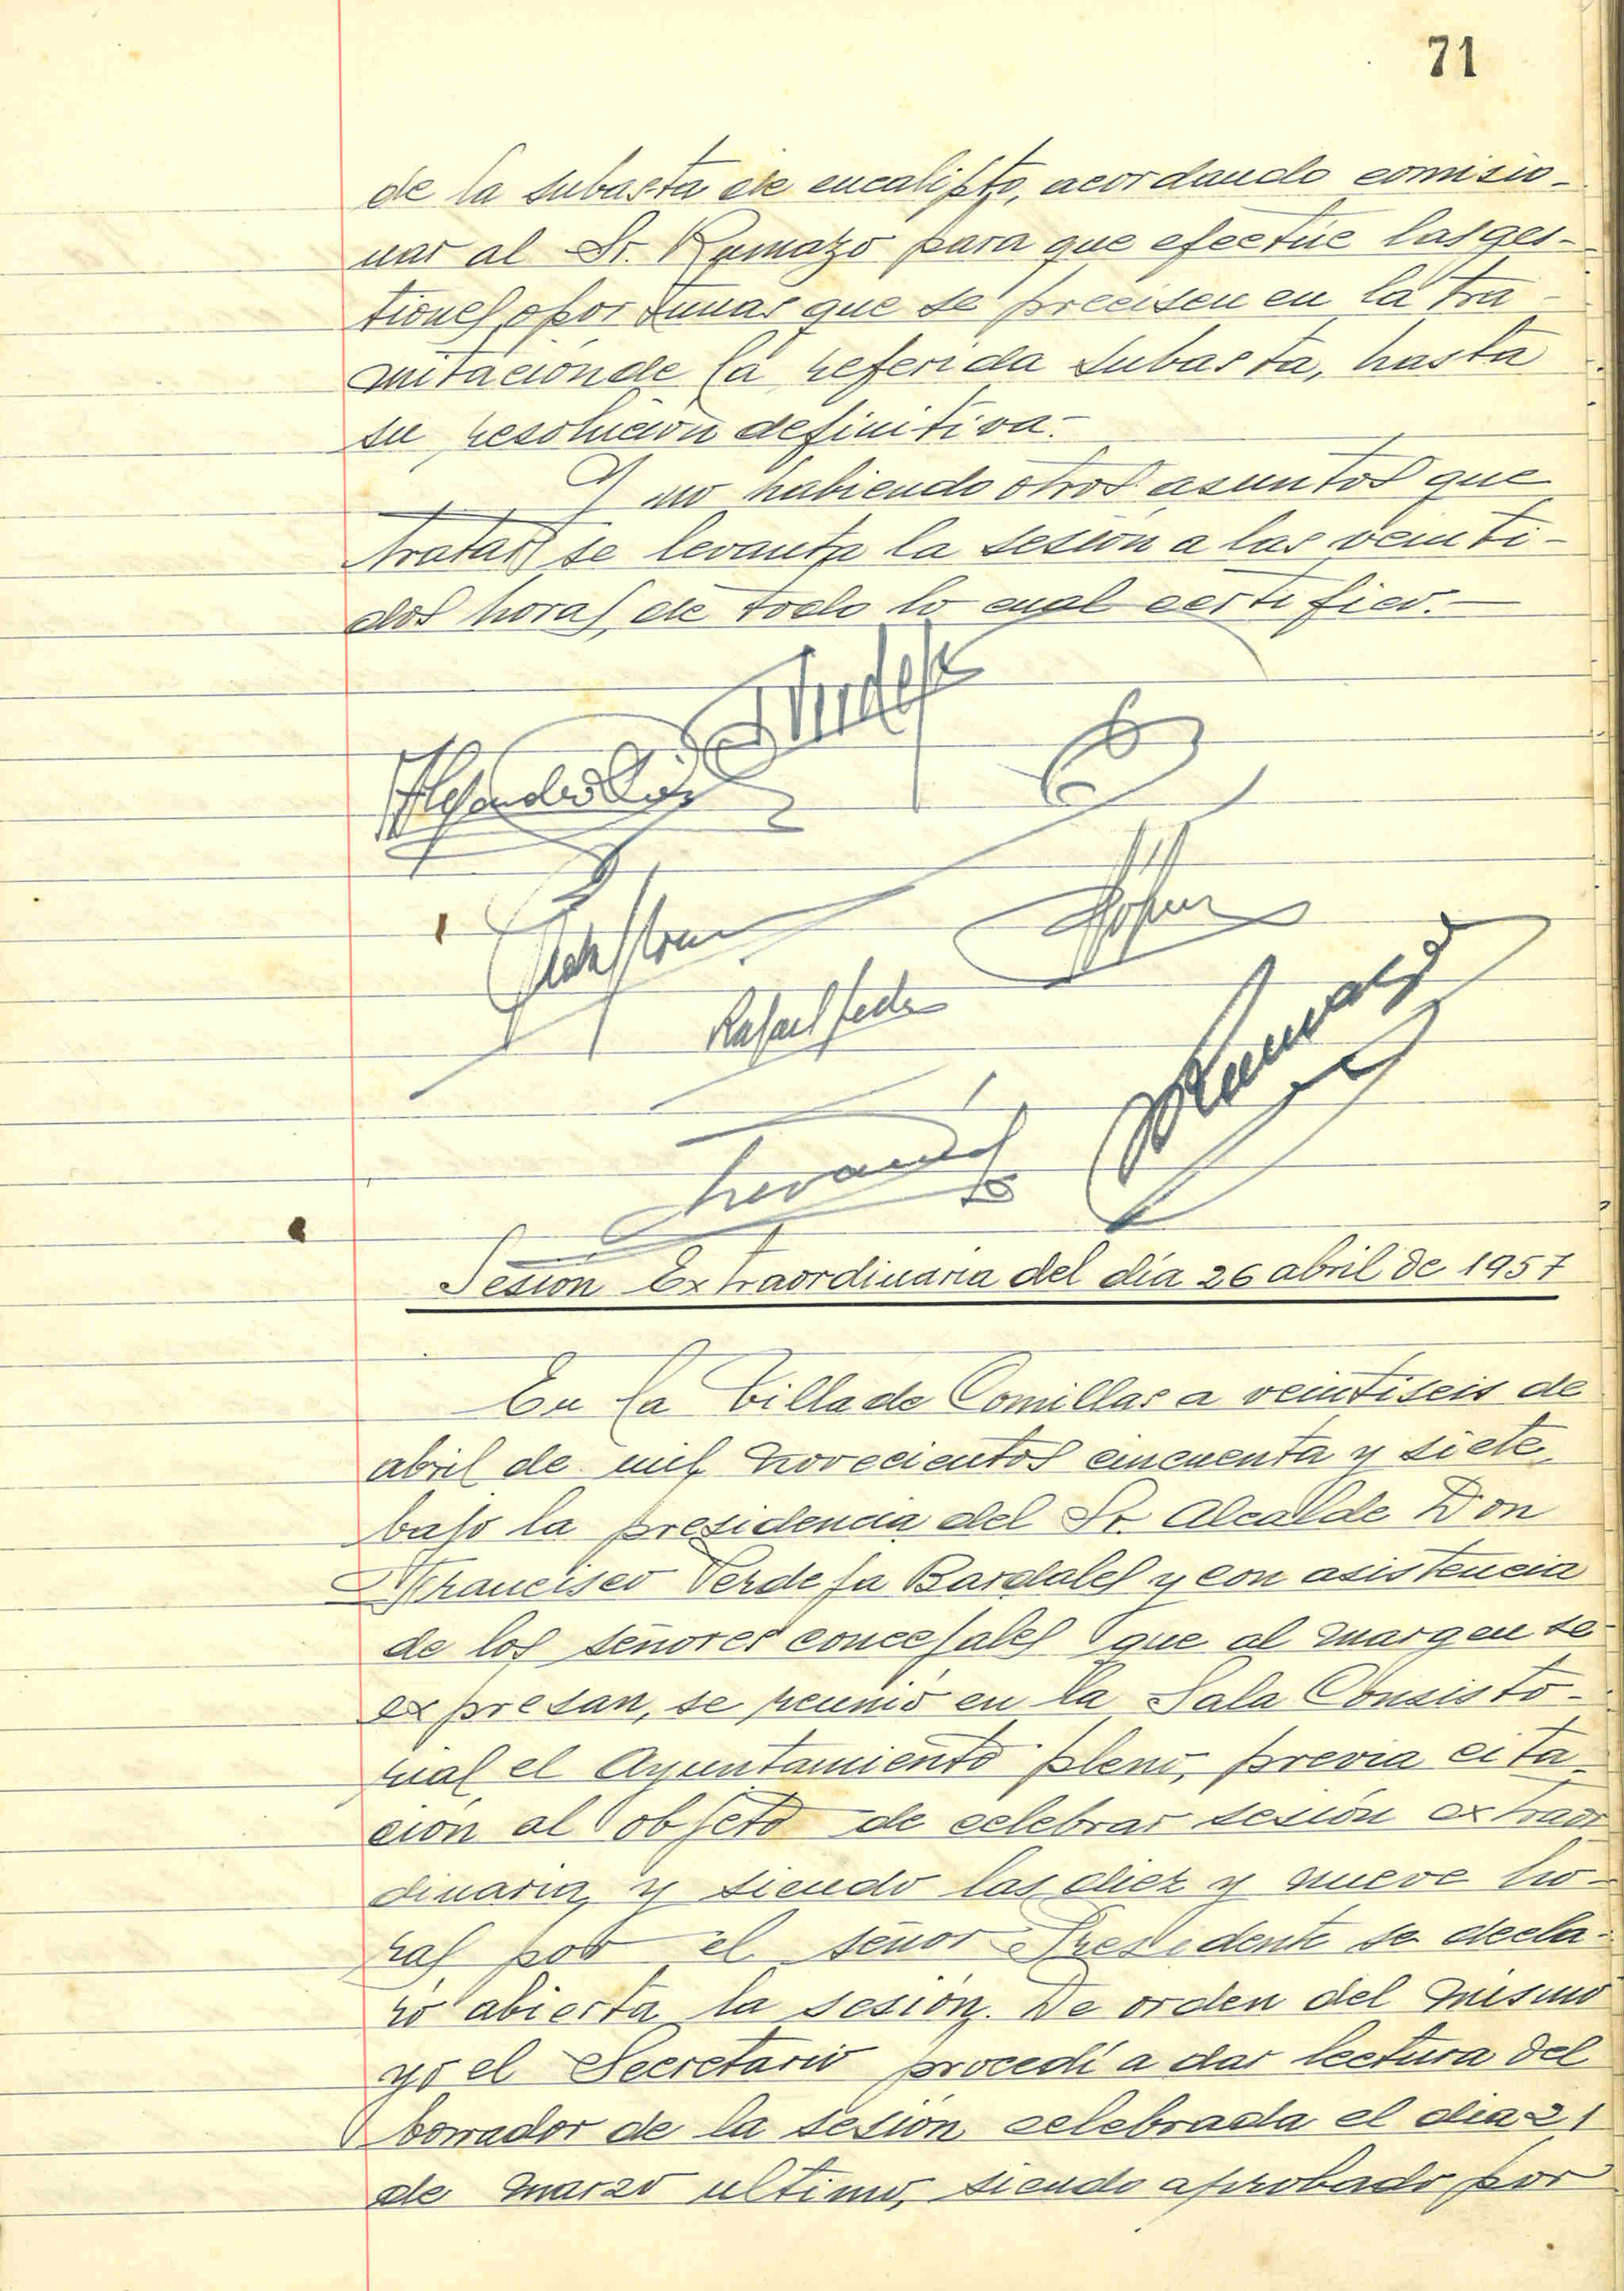 71
de la subasta de eucalipto, acordando comisio-
nar al Sr. Rumazo para que efectúe las ges-
tiones oportunas que se precisen en la tra-
mitación de la referida subasta, hasta
su resolución definitiva.-
Y no habiendo otros asuntos que
tratar se levanta la sesión a las veinti-
dos horas, de todo lo cual certifico.-
Verdeja
Alejandro Díaz
Rafael
Rumazo
Sesión Extraordinaria del día 26 abril de 1957
En la Villa de Comillas a veintiseis de
abril de mil novecientos cincuenta y siete,
bajo la presidencia del Sr. Alcalde Don
Francisco Verdeja Bardales y con asistencia
de los señores concejales que al margen se
expresan, se reunió en la Sala Consisto-
rial el Ayuntamiento pleno, previa cita-
ción al objeto de celebrar sesión extraor
dinaria, y siendo las diez y nueve ho-
ras por el señor Presidente se decla-
ró abierta la sesión. De orden del mismo
yo el Secretario procedí a dar lectura del
borrador de la sesión celebrada el dia 21
de marzo ultimo, siendo aprobado por